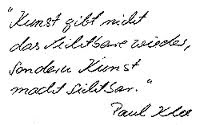 "Kunst gibt nicht
das Sichtbare wieder,
sondern Kunst
macht sichtbar."
Paul Klee